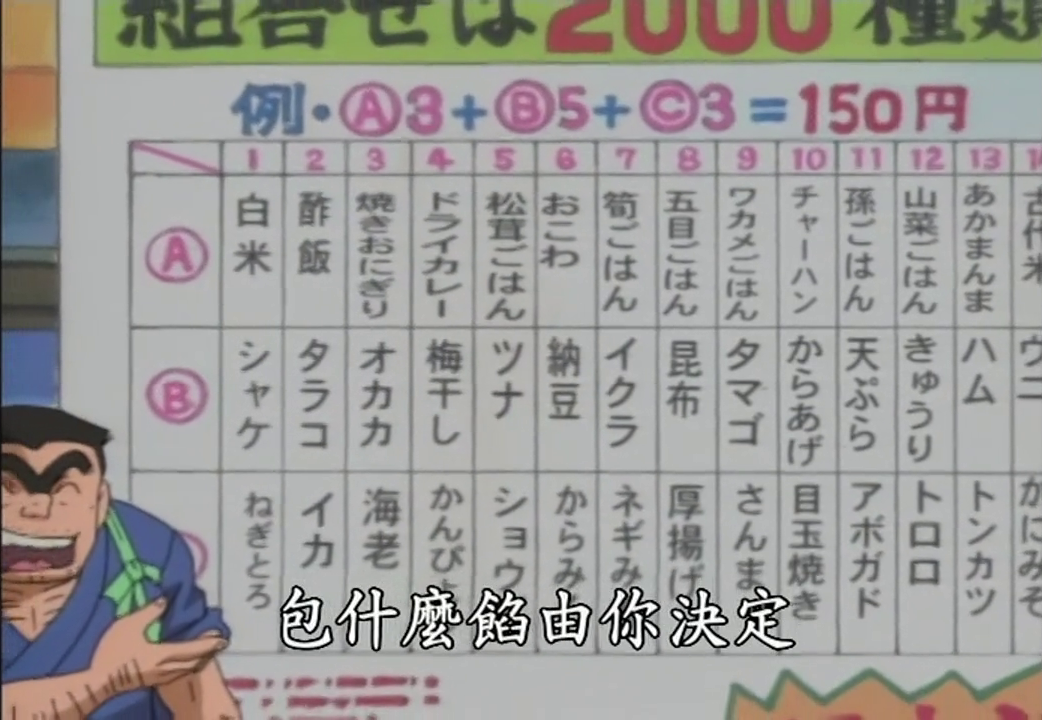 組合せは2000種類
例・Ⓐ3+Ⓑ5+Ⓒ3=150円
1 2 3 4 5 6 7 8 9 10 11 12 13
Ⓐ 白米 酢飯 焼きおにぎり ドライカレー 松茸ごはん おこわ 筍ごはん 五目ごはん ワカメごはん チャーハン 孫ごはん 山菜ごはん あかまんま 古代米
Ⓑ シャケ タラコ オカカ 梅干し ツナ 納豆 イクラ 昆布 タマゴ からあげ 天ぷら きゅうり ハム ウニ
ねぎとろ イカ 海老 かんぴょ ショウ からみ ネギみ 厚揚げ さんま 目玉焼き アボガド トロロ トンカツ かにみそ
包什麼餡由你決定